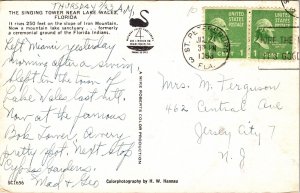 THURSDAY
THE SINGING TOWER NEAR LAKE WALES,
FLORIDA
It rises 250 feet on the slope of Iron Mountain.
Now a mountain lake sanctuary — formerly
a ceremonial ground of the Florida Indians.
Left Miami yesterday
morning after a
slept in the town of
Lake Wales last nite.
Now at the famous
Bok Tower, a very
pretty spot. Next stop
Cypress Gardens.
Mae & Geo
SC1656
Colorphotography by H. W. Hannau
ST. PE
FLA.
Mrs. M. Ferguson
462 Central Ave
Jersey City 7
N. J.